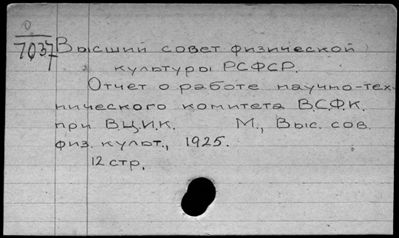 0
7037
Высший совет физической
культуры РСФСР.
Отчет о работе научно-тех-
нического комитета В.С.Ф.К.
при В.Ц.И.К. М., Выс. сов.
физ. культ., 1925.
12 стр.